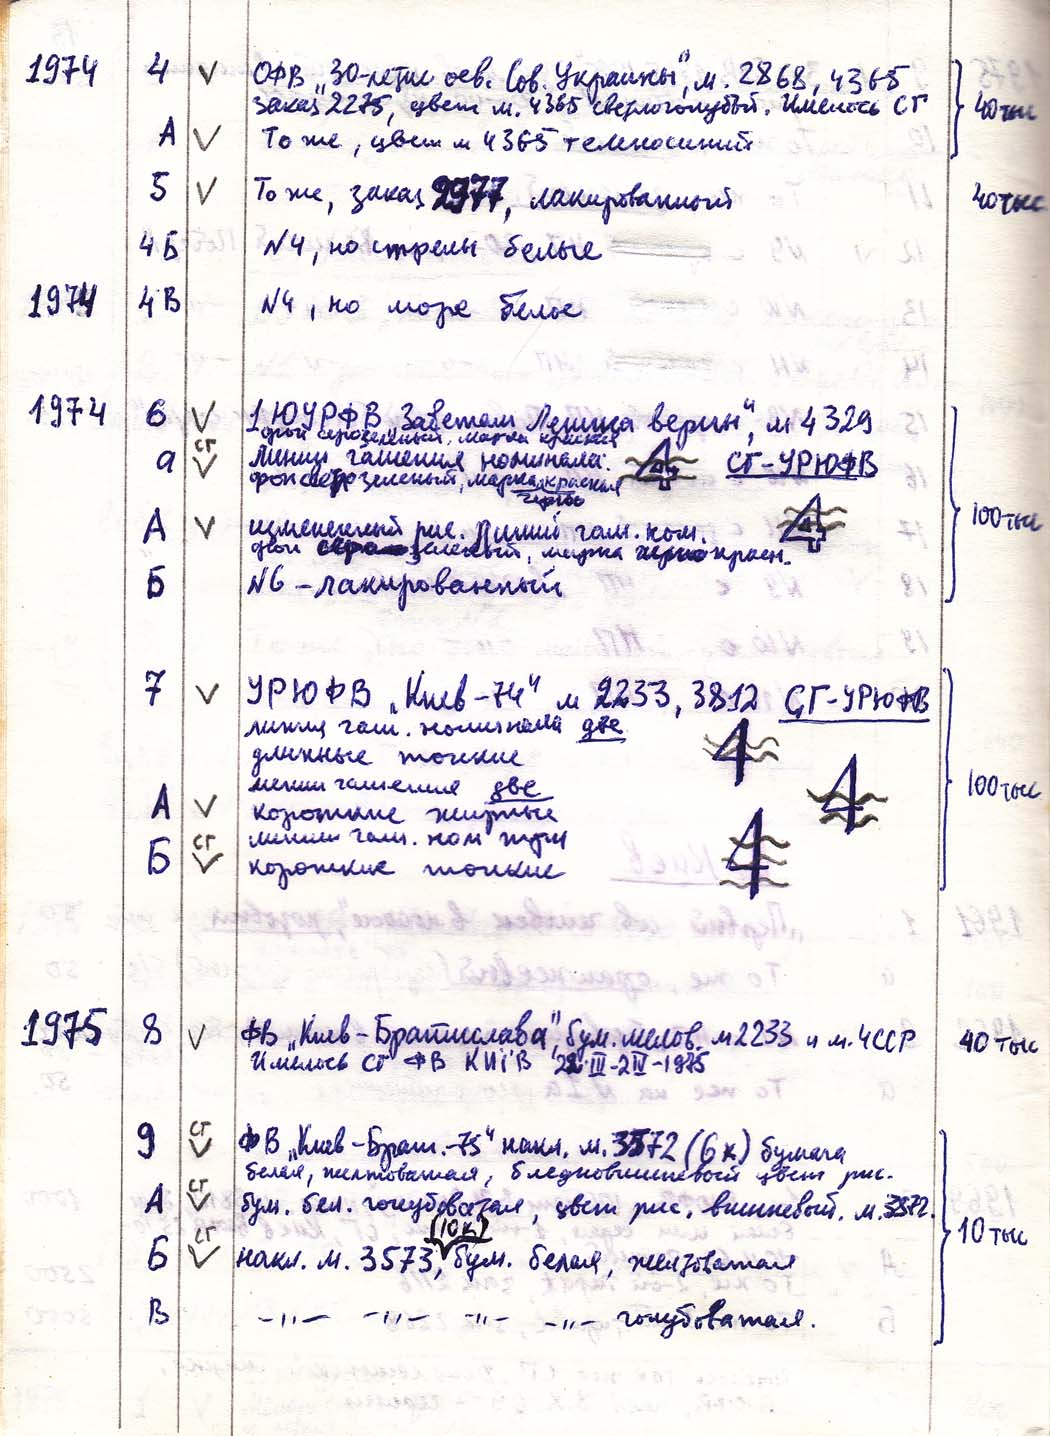 1974 4 V ОФВ „30-летие осв. Сов. Украины", м. 2868, 4365
заказ 2275, цвет м. 4365 светлоголубой. Имелось СГ 40 тыс
А V То же, цвет м 4365 темносиний
5 V То же, заказ 2977, лакированный 40 тыс
4Б N4, но стрелы белые
1974 4В N4, но море белое
1974 6 V 1 ЮУРФВ „Заветам Ленина верны", м 4329
фон серозеленый, марка красная
а СГ V линии гашения номинала: 4 СГ-УРЮФВ
фон серозеленый, марка красная
100 тыс
А V измененный рис. Линий гаш. ном. 4
фон зеленый, марка красн.
Б N6 – лакированный
7 V УРЮФВ „Киев-74" м 2233, 3812 СГ-УРЮФВ
линия гаш. номинала две 4
длинные тонкие
линии гашения две 4 100 тыс
А V короткие жирные
линии гаш. ном три 4
Б СГ V короткие тонкие
1975 8 V ФВ „Киев-Братислава", бум. мелов. м 2233 и м. ЧССР 40 тыс
Имелось СГ ФВ КИЇВ 22·III-2IV-1975
9 СГ V ФВ „Киев-Брат.-75" накл. м. 3572 (6к) бумага
белая, желтоватая, бледновишневый цвет рис.
А СГ V бум. бел. голубоватая, цвет рис. вишневый. м. 3572.
(10к) 10 тыс
Б СГ V накл. м. 3573, бум. белая, желтоватая
В –„– –„– –„– –„– голубоватая.